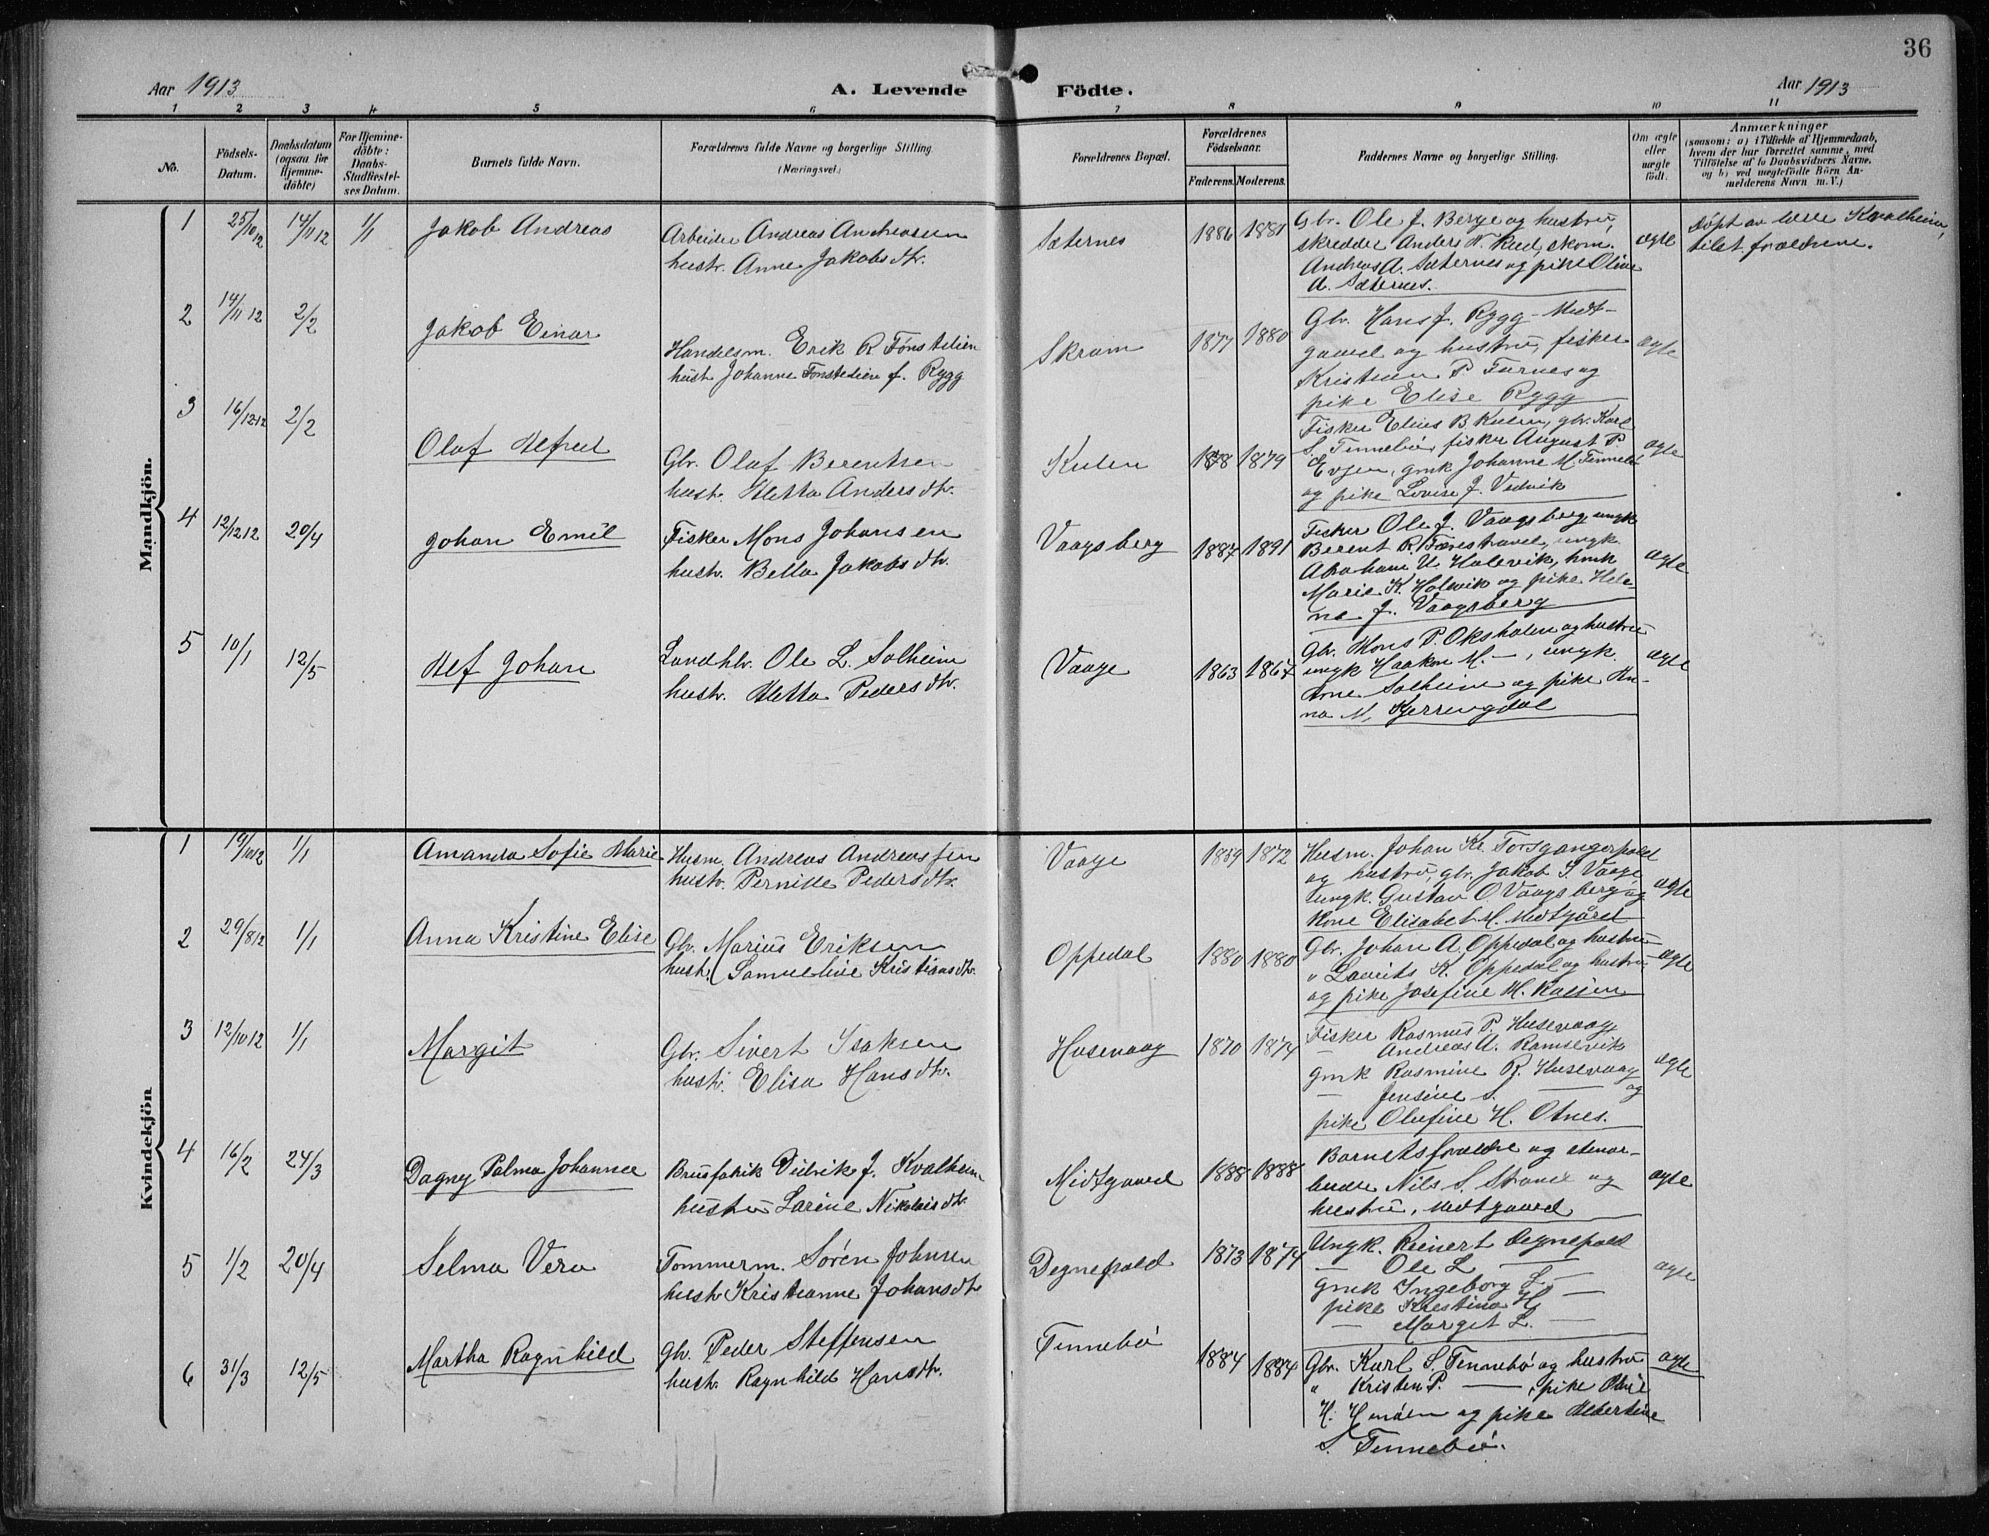 36
Aar 1913
A. Levende Födte.
Aar 1913
1 2 3 4 5 6 7 8 9 10 11
No.
Födsels-Datum.
Daabsdatum (ogsaa for Hjemmedöbte)
For Hjemmedöbte: Daabs-Stadfæstelses Datum.
Barnets fulde Navn.
Forældrenes fulde Navne og borgerlige Stilling. (Næringsvei.)
Forældrenes Bopæl.
Forældrenes Födselsaar.
Faderens. Moderens.
Faddernes Navne og borgerlige Stilling.
Om ægte eller uægte födt.
Anmærkninger
(saasom: a) i Tilfælde af Hjemmedaab, hvem der har forrettet samme, med Tilföielse af to Daabsvidners Navne, og b) ved uægtefödte Börn Anmelderens Navn m. V.)
Mandkjön.
1 25/10 12 14/11 12 1/1 Jakob Andreas
Arbeider Andreas Andreassen
hustr. Anne Jakobsdtr.
Sæternes 1886 1881
Gbr. Ole J. Berge og hustru,
skredder Anders N. Rud, skom.
Andreas A. Sæternes og pike Oline
A. Sæternes.
ægte
Døpt av lærer Kvalheim,
tilst. forældrene.
2 14/11 12 2/2 Jakob Einar
Handelsm. Erik R. Tønstelien
hustr Johanne Tønstelien f. Rygg
Skram 1877 1880
Gbr. Hans J. Rygg-Midt-
gaard og hustru, fisker
Kristian P. Furnes og
pike Elise Rygg
ægte
3 16/12 12 2/2 Olaf Alfred
Gbr. Olaf Berentsen
hustr. Aletta Andersdtr.
Kulen 1878 1879
Fisker Elias B. Kulen, gbr. Karl
S. Tennebø, fisker August P.
Evjen, gmk Johanne M. Tennebø
og pike Lovise J. Vedvik
ægte
4 12/12 12 20/4 Johan Emil
Fisker Mons Johansen
hustr. Bella Jakobsdtr.
Vaagsberg 1887 1891
Fisker Ole J. Vaagsberg, ungk
Berent R. Færestrand, ungk.
Abraham U. Halevik, hmk
Marie K. Holevik og pike Hele-
na J. Vaagsberg
ægte
5 10/1 12/5 Alf Johan
Landhlr. Ole L. Solheim
hustr. Aletta Pedersdtr.
Vaage 1863 1867
Gbr. Mons P. Oksholen og hustru
ungk Haakon M. —, ungk.
Arne Solheim og pike An-
na M. Kjerringdal
ægte
Kvindekjön
1 19/10 12 1/1 Amanda Sofie Marie
Husm. Andreas Andreassen
hustr. Pernille Pedersdtr.
Vaage 1869 1872
Husm. Johan K. Torsgangerpold
og hustru, gbr. Jakob S. Vaage
ungk. Gustav O Vaagsberg og
kone Elisabet M. Midtgård
ægte
2 29/8 12 1/1 Anna Kristine Elise
Gbr. Marius Eriksen
hustr. Samueline Kristiansdtr.
Oppedal 1880 1880
Gbr. Johan A. Oppedal og hustru
" Laurits K. Oppedal og hustru,
og pike Josefine M. Raşjen
ægte
3 12/10 12 1/1 Margit
Gbr. Sivert Isaksen
hustr. Elisa Hansdtr.
Husevaag 1870 1874
Fisker Rasmus P. Husevaag
— Andreas A. Ramsevik
gmk Rasmine R. Husevaag
— Jensine S. — og
pike Olufine H. Otnes.
ægte
4 16/2 24/3 Dagny Palma Johanne
Brusfabrik Didrik J. Kvalheim
hustru Larine Nikolaisdtr.
Midtgaard 1888 1888
Barnets forældre og stenar-
beider Nils S. Strand og
hustru, Midtgaard
ægte
5 1/2 20/4 Selma Vera
Tømmerm. Søren Johnsen
hustr Kristianne Johansdtr
Degnepold 1873 1874
Ungk. Reinert Degnepold
— Ole L —
gmk Ingeborg L. —
pike Kristina H
— Margit L. —
ægte
6 31/3 12/5 Martha Ragnhild
Gbr. Peder Steffensen
hustr. Ragnhild Hansdtr.
Tennebø 1884 1884
Gbr. Karl S. Tennebø og hustru
" Kristen P. —, pike Olivie
H. Henøen og pike Albertine
S. Tennebø.
ægte